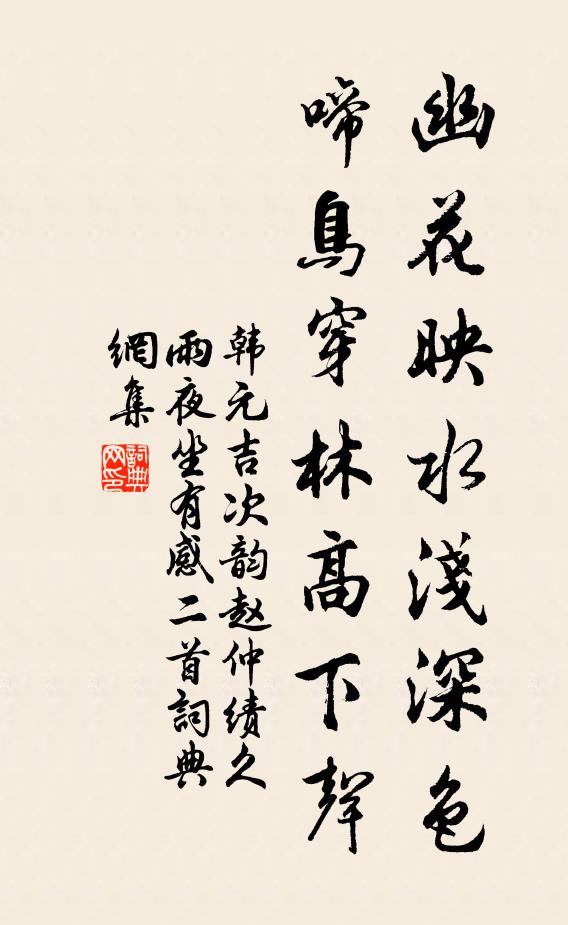 幽花映水淺深色
啼鳥穿林高下聲
韩元吉次韵赵仲績久
雨夜坐有感二首詞典
網集
詞典
网印